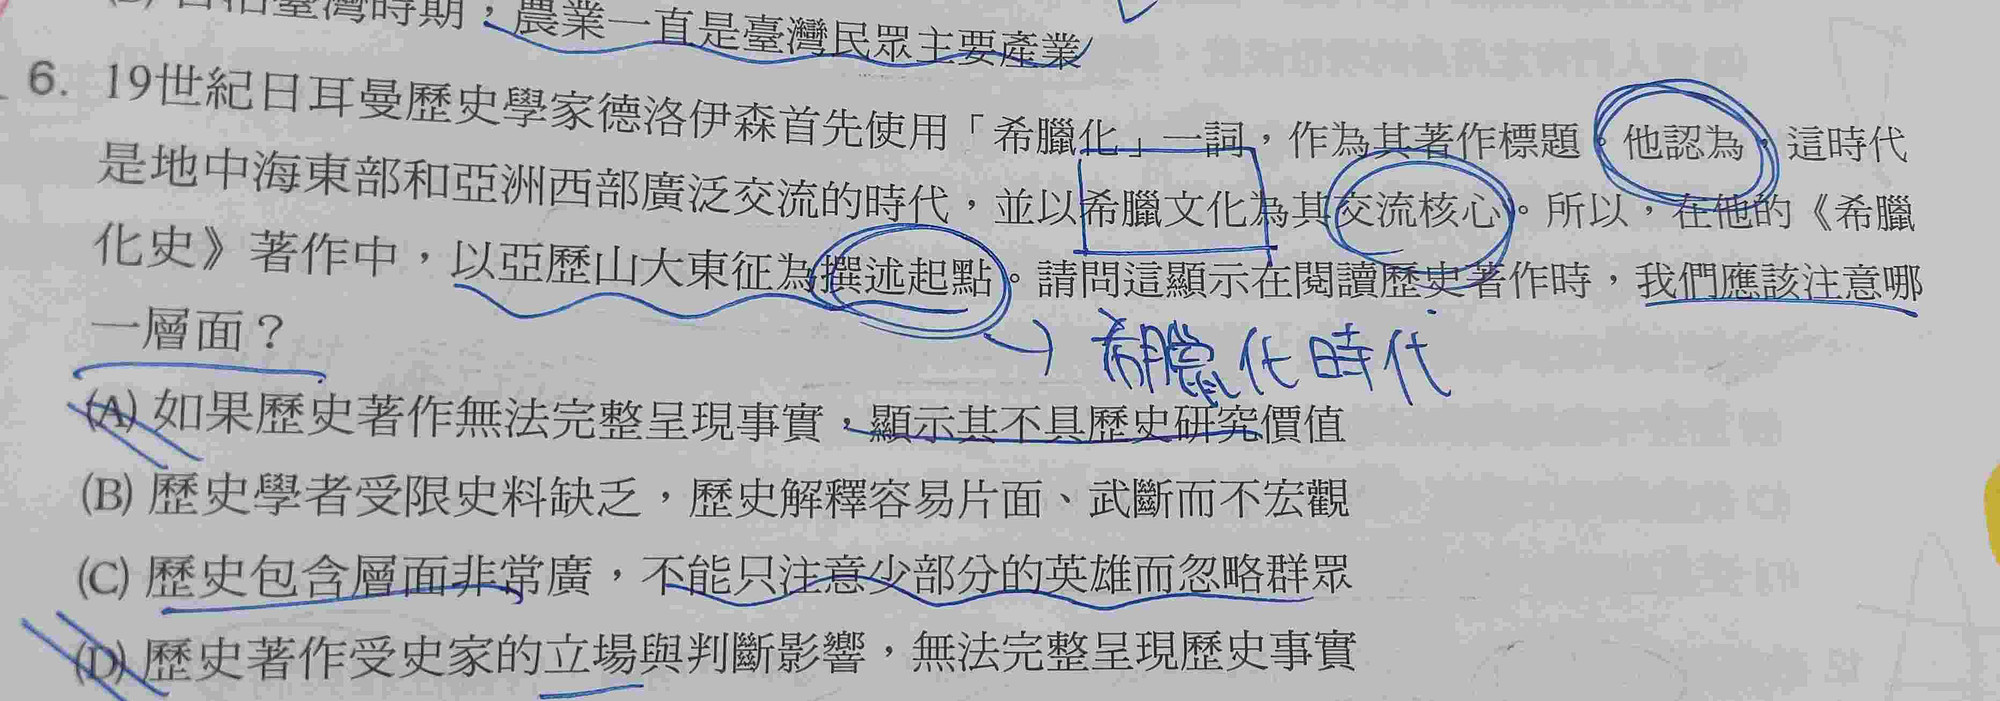 臺灣時期，農業一直是臺灣民眾主要產業
6. 19世紀日耳曼歷史學家德洛伊森首先使用「希臘化」一詞，作為其著作標題。他認為，這時代
是地中海東部和亞洲西部廣泛交流的時代，並以希臘文化為其交流核心。所以，在他的《希臘
化史》著作中，以亞歷山大東征為撰述起點。請問這顯示在閱讀歷史著作時，我們應該注意哪
一層面？
希臘化時代
(A) 如果歷史著作無法完整呈現事實，顯示其不具歷史研究價值
(B) 歷史學者受限史料缺乏，歷史解釋容易片面、武斷而不宏觀
(C) 歷史包含層面非常廣，不能只注意少部分的英雄而忽略群眾
(D) 歷史著作受史家的立場與判斷影響，無法完整呈現歷史事實